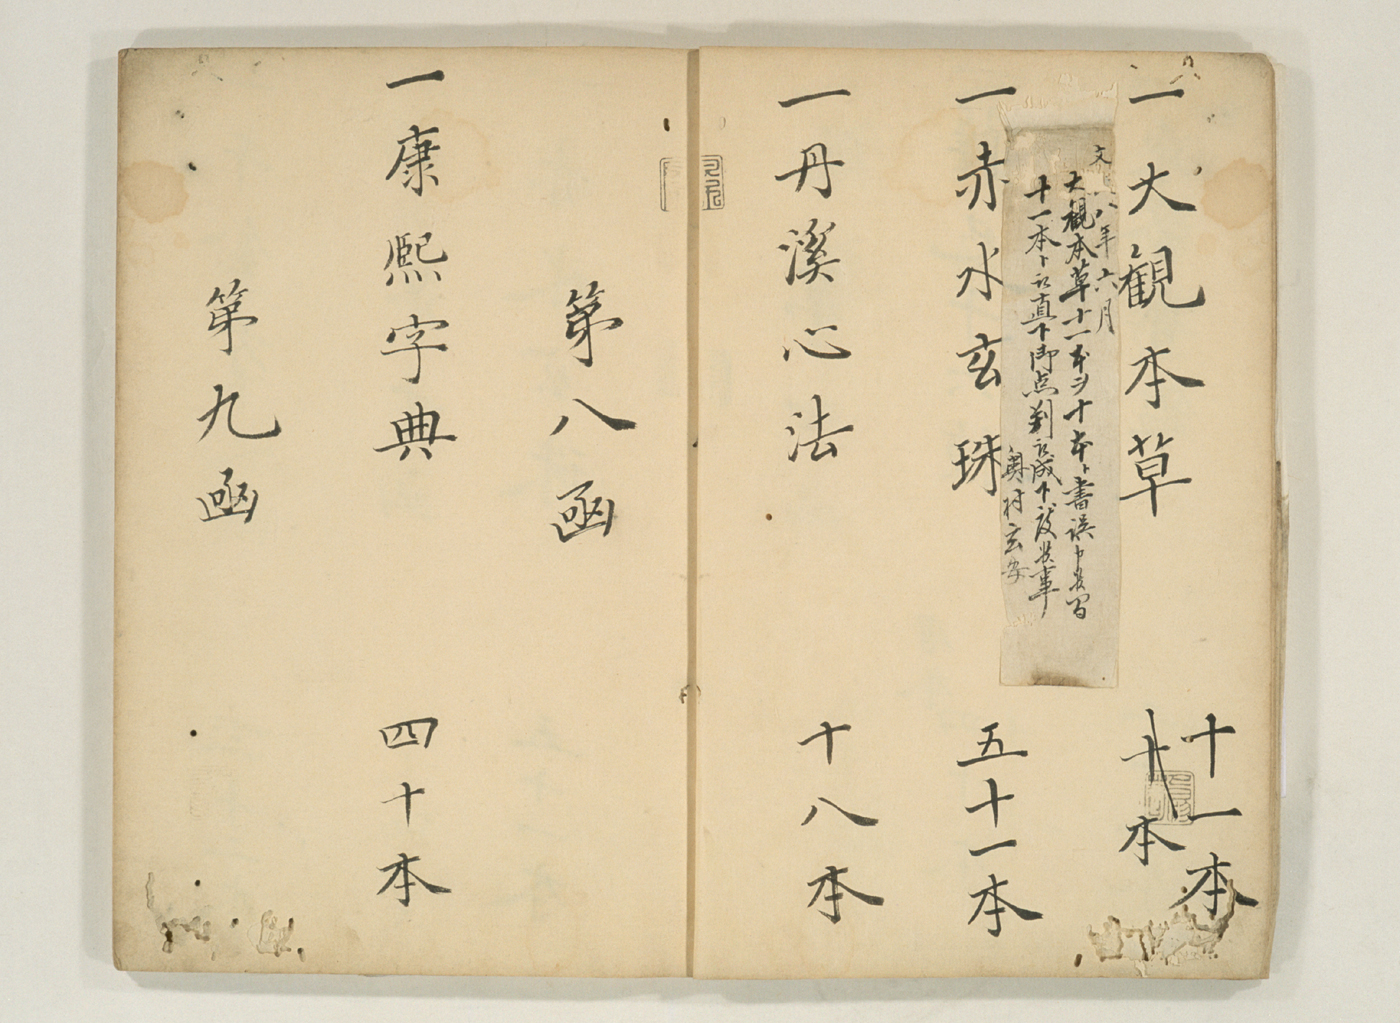 一大観本草
十一本
十本
文 八年六月
大観本草十一本ヲ十本ト書誤
十一本ト 直下御点判 成下 事
奥村玄安
一赤水玄珠
五十一本
一丹溪心法
十八本
第八函
一康熙字典
四十本
第九函